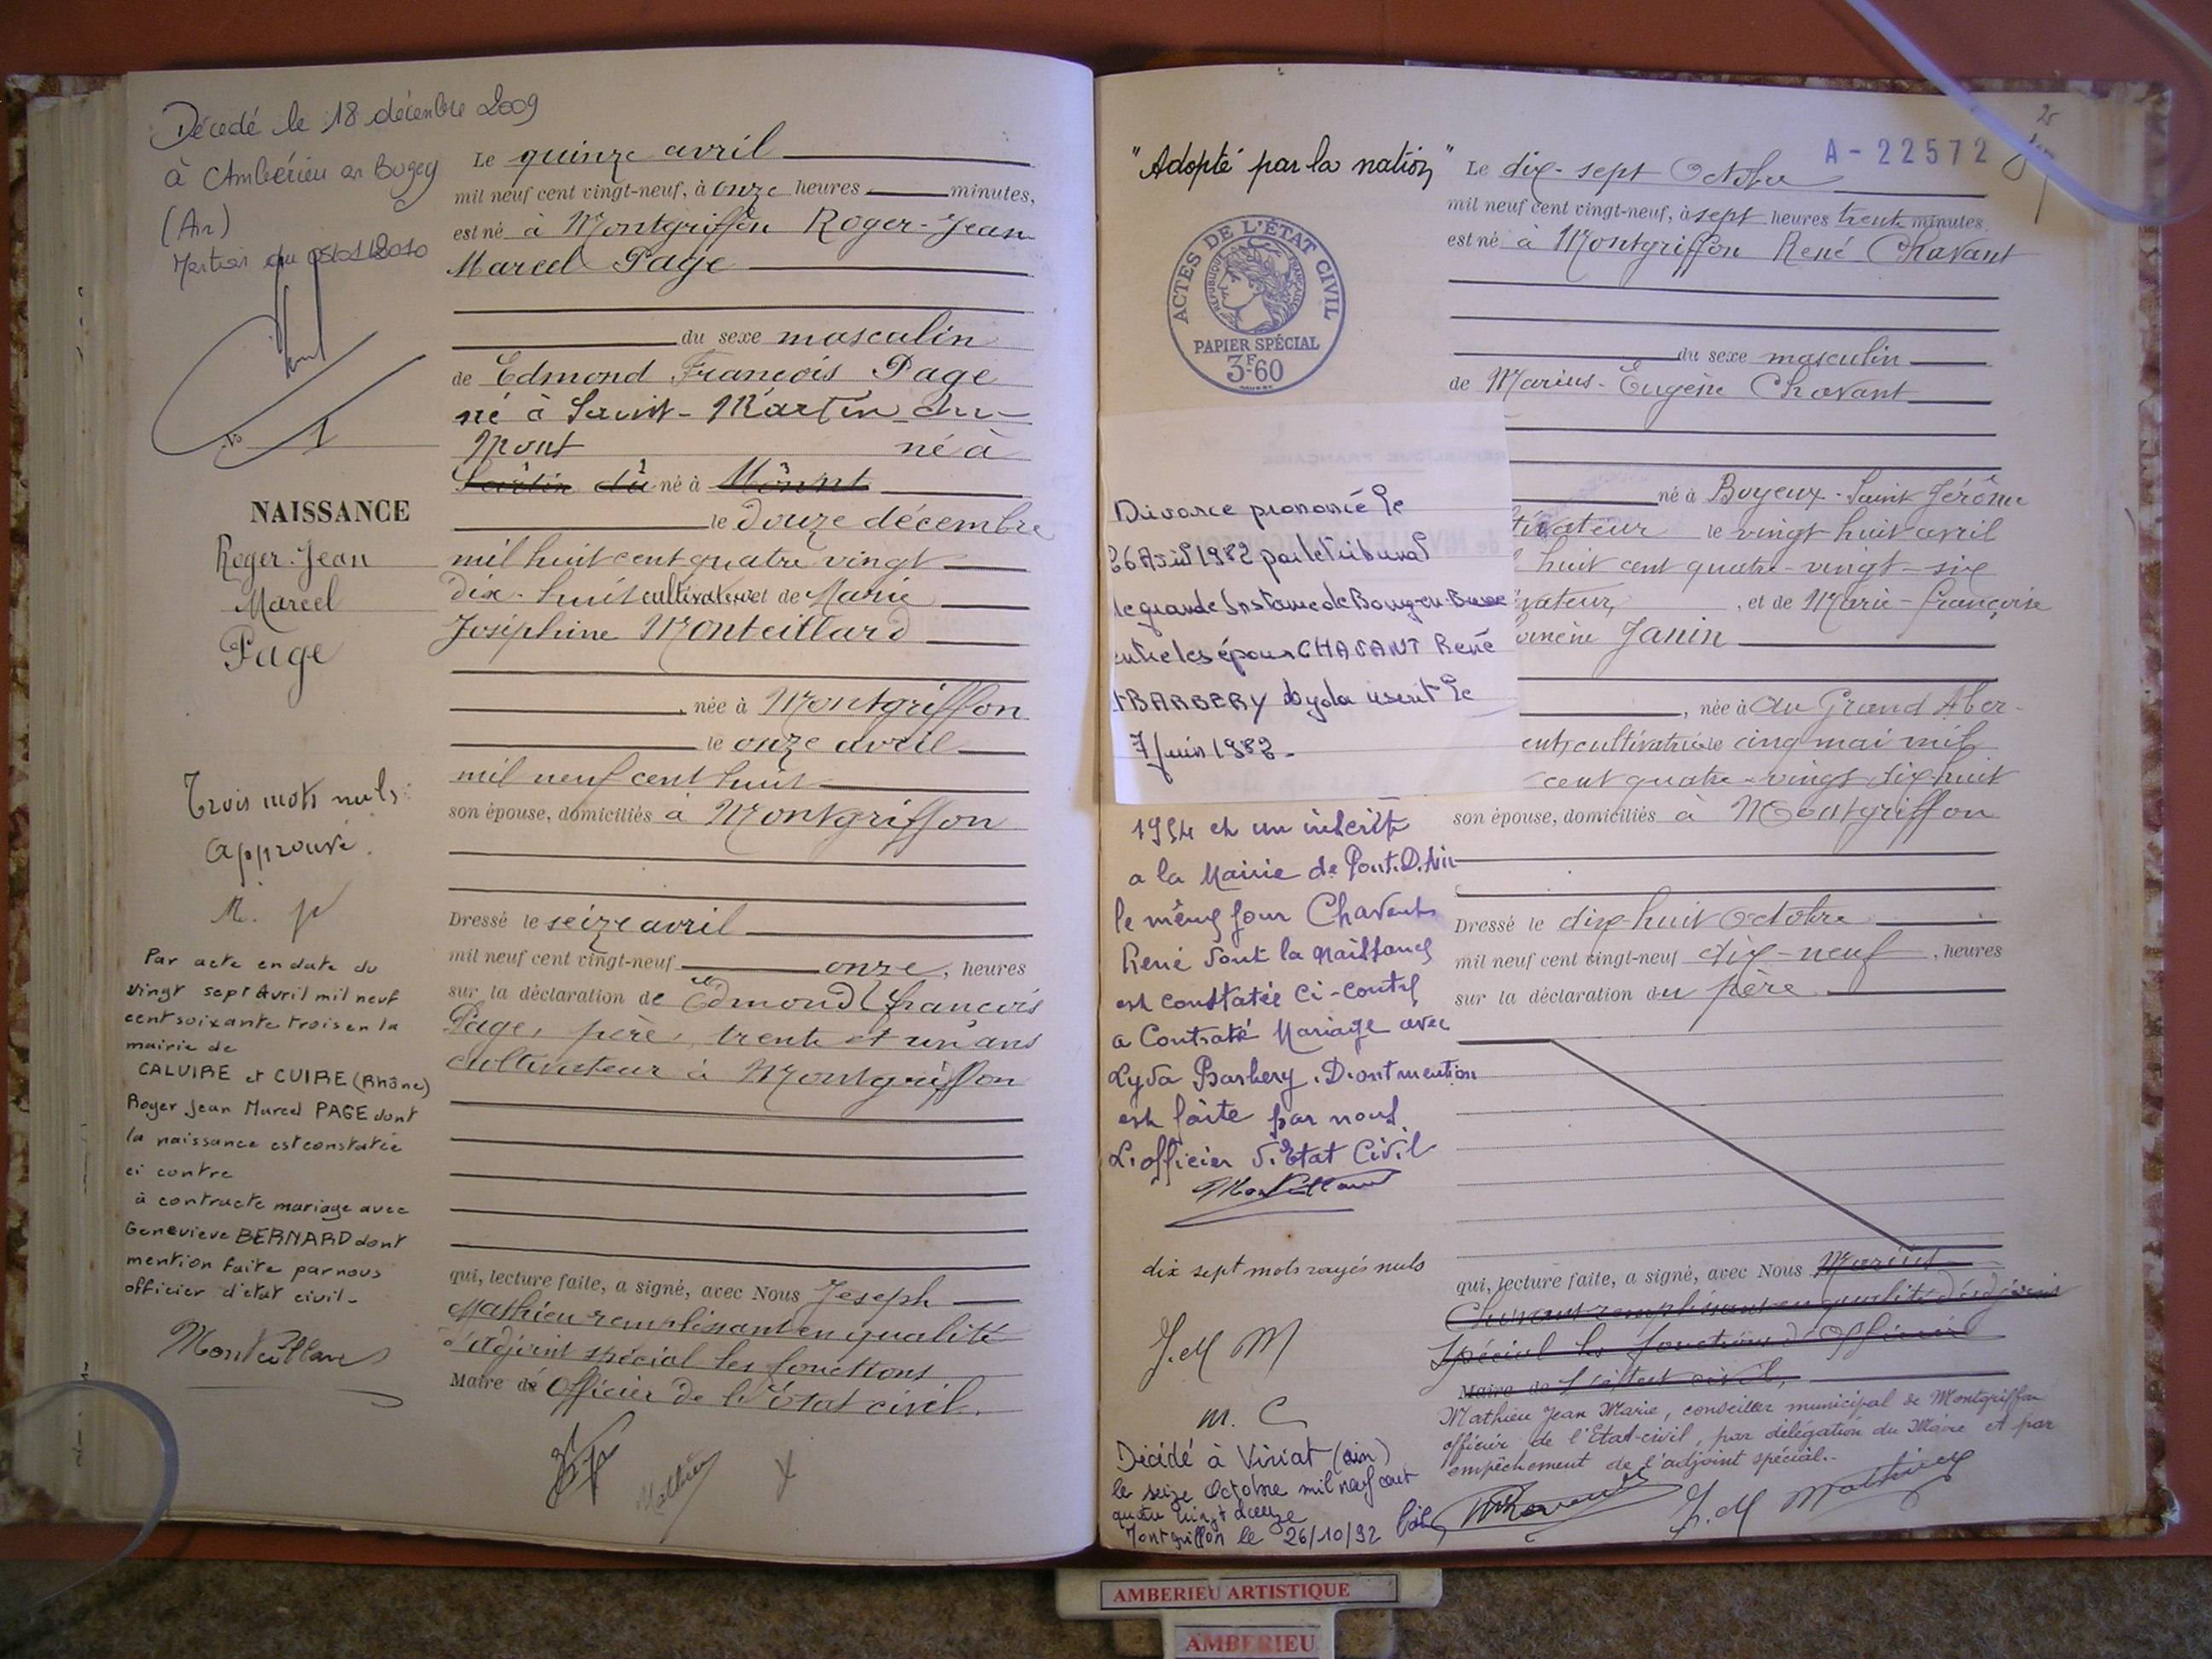 Décédé le 18 décembre 2009
à Ambérieu en Bugey
(Ain)
NAISSANCE
Roger-Jean
Marcel
Page
Trois mots nuls
approuvé.
Par acte en date du
vingt sept Avril mil neuf
cent soixante trois en la
mairie de
CALUIRE et CUIRE (Rhône)
Roger Jean Marcel PAGE dont
la naissance est constatée
ci contre
à contracte mariage avec
Genevieve BERNARD dont
mention faite par nous
officier d'etat civil-
Le quinze avril
mil neuf cent vingt-neuf, à onze heures minutes,
est né à Montgriffon Roger-Jean
Marcel Page
du sexe masculin
de Edmond François Page
né à Saint-Martin-du-
Mont né à
né à
le douze décembre
mil huit cent quatre vingt
dix-huit cultivateur et de Marie
Joséphine Monteillard
, née à Montgriffon
le onze avril
mil neuf cent huit
son épouse, domiciliés à Montgriffon
Dressé le seize avril
mil neuf cent vingt-neuf onze, heures
sur la déclaration de Edmond françois
Page, père, trente et un ans
cultivateur à Montgriffon
qui, lecture faite, a signé, avec Nous Joseph
Mathieu remplissant en qualité
d'adjoint spécial les fonctions
Maire de Officier de l'Etat civil.
Mathieu
"Adopté par la nation"
ACTES DE L'ÉTAT CIVIL
RÉPUBLIQUE FRANÇAISE
PAPIER SPÉCIAL
3F60
Divorce prononcé le
26 Avril 1982 par le Tribunal
de grande Instance de Bourg-en-Bresse
entre les époux CHAVANT René
et BARBERY Lyda inscrit le
7 Juin 1982-
1954 et un inscrit
a la Mairie de Pont.D.Ain
le même jour Chavant
René dont la naissance
est constatée ci-contre
a Contraté Mariage avec
Lyda Barbery. Dont mention
est faite par nous
L'officier d'Etat Civil
dix sept mots rayés nuls
J.M M
M. C
Décédé à Viriat (ain)
le seize Octobre mil neuf cent
quatre vingt douze
Montgriffon le 26/10/92
A-22572
Le dix-sept Octobre
mil neuf cent vingt-neuf, à sept heures trente minutes
est né à Montgriffon René Chavant
du sexe masculin
de Marius-Eugène Chavant
né à Boyeux-Saint Jérôme
tivateur le vingt huit avril
huit cent quatre-vingt-six
vateur, , et de Marie-françoise
Janin
, née à Au Grand Aber-
cultivatrice cinq mai mil
cent quatre-vingt dix huit
son épouse, domiciliés à Montgriffon
Dressé le dix-huit Octobre
mil neuf cent vingt-neuf dix-neuf, heures
sur la déclaration du père
qui, lecture faite, a signé, avec Nous Marius
Chavant remplissant en qualité d'adjoint
Spécial les fonctions d'Officier
Maire de l'état civil,
Mathieu Jean Marie, conseiller municipal de Montgriffon
officier de l'Etat-civil, par délégation du Maire et par
empêchement de l'adjoint spécial.-
J. M Mathieu
AMBERIEU ARTISTIQUE
AMBERIEU